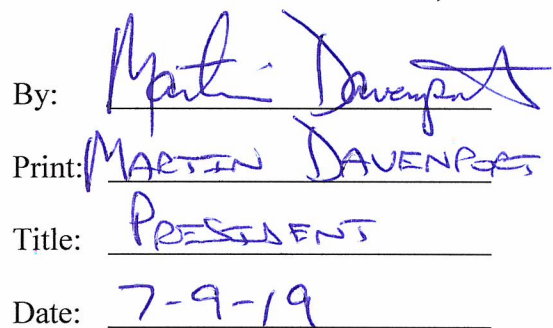 By: Martin Davenport
Print: MARTIN DAVENPORT
Title: PRESIDENT
Date: 7-9-19